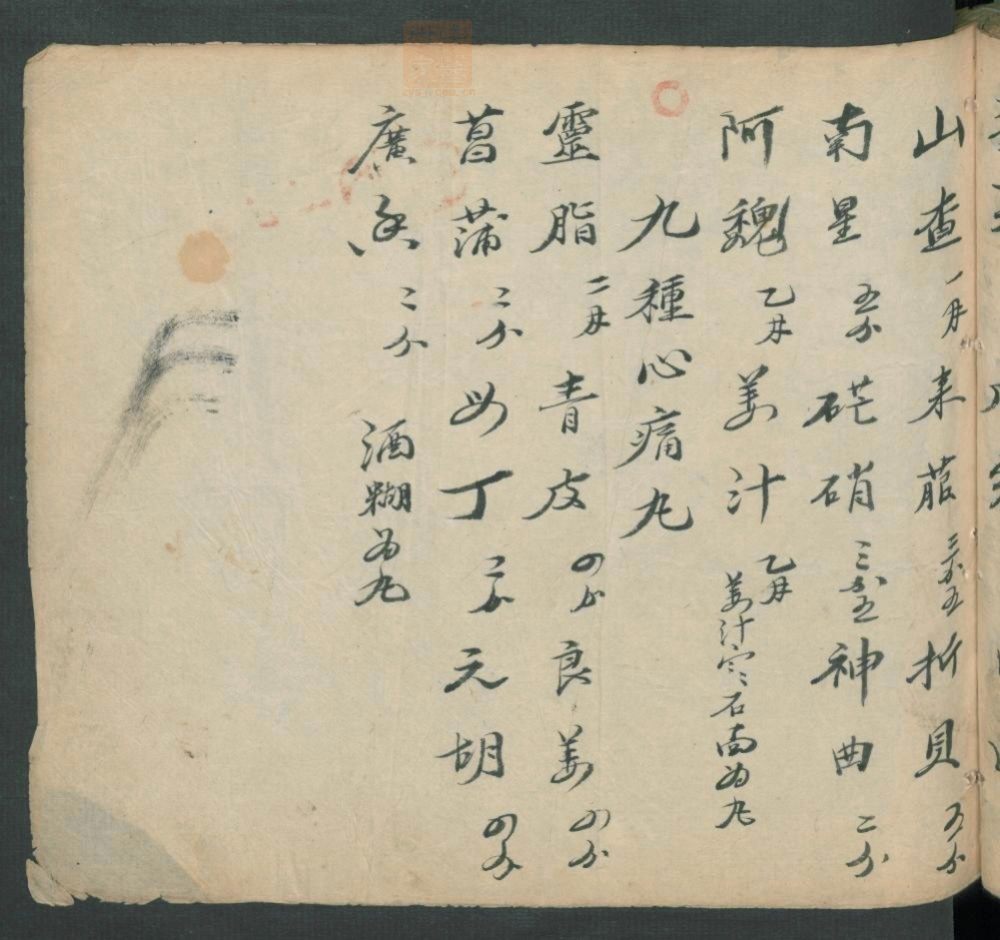 山查一日来菔三分五折貝五分
南星五分硭硝三分五神曲二分
阿魏乙日姜汁乙日姜汁 石 為丸
九種心痛丸
靈脂二日青皮四分良姜四分
菖蒲二分 丁二分元胡四分
廣 二分 酒糊為丸